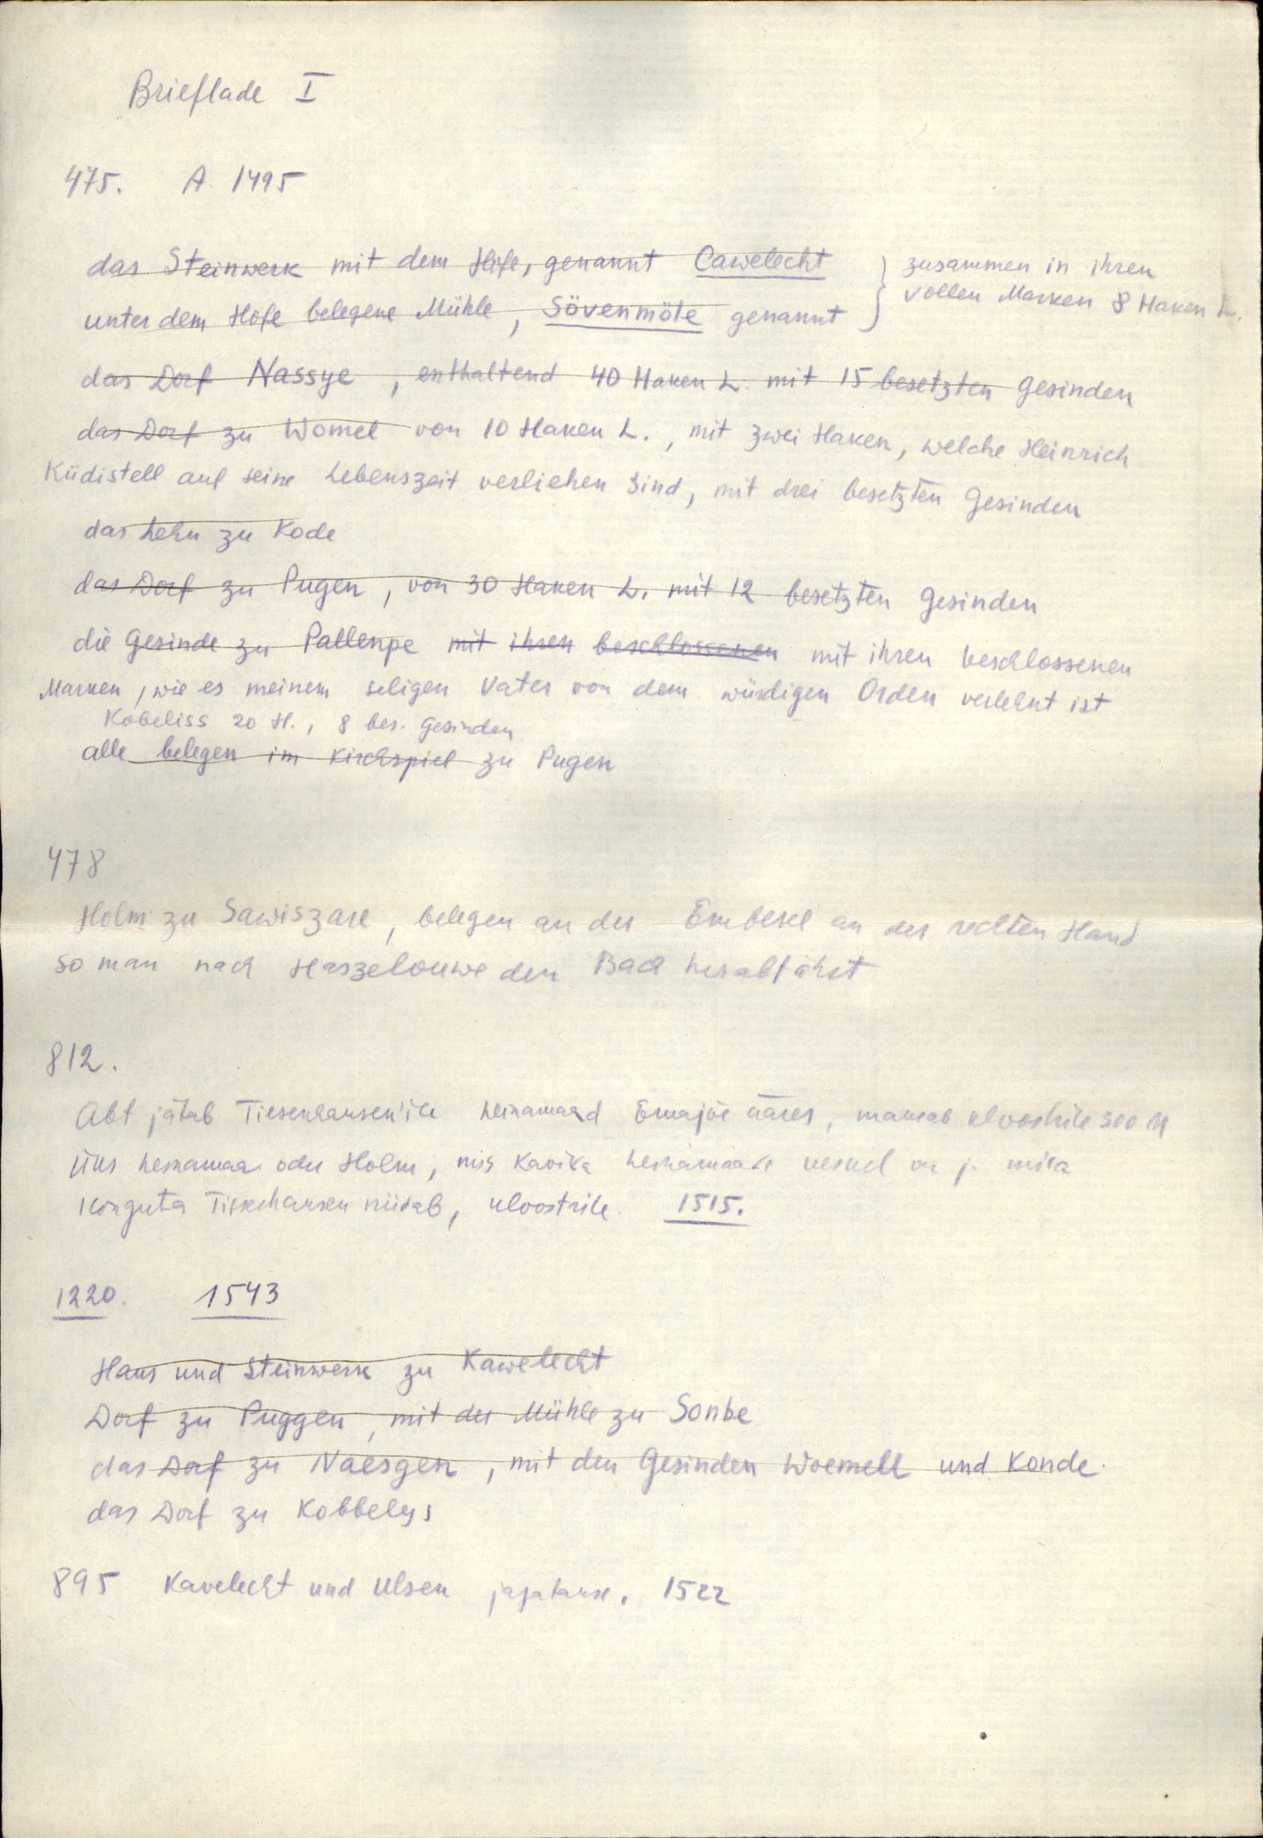 Brieflade I
475. A 1495
das Steinwerk mit dem Hofe, genannt Cawelecht
unter dem Hofe belegene Mühle, Sövenmöte genannt
} zusammen in ihren
vollen Marken 8 Haken L.
das Dorf Nassye, enthaltend 40 Haken L. mit 15 besetzten Gesinden
das Dorf zu Womel von 10 Haken L., mit zwei Haken, welche Heinrich
Küdistell auf seine Lebenszeit verliehen sind, mit drei besetzten Gesinden
das Lehn zu Kode
das Dorf zu Pugen, von 30 Haken L. mit 12 besetzten Gesinden
die Gesinde zu Pallenpe mit ihren beschlossenen mit ihren beschlossenen
Marken, wie es meinem seligen Vater von dem würdigen Orden verlehnt ist
Kobeliss 20 H., 8 bes. Gesinden
alle belegen im Kirchspiel zu Pugen
478
Holm zu Sawiszare, belegen an der Embeke an der rechten Hand
so man nach Haszelouwe den Bach herabfährt
812.
Abt jätab Tiesenhausen'ile heinamaad Emajõe ääres, maksab kloostrile 300 M
Üks heinamaa oder Holm, mis Kavika heinamaade vahel on ja mida
Konguta Tiesenhausen niidab, kloostrile. 1515.
1220. 1543
Haus und Steinwerk zu Kawelecht
Dorf zu Puggen, mit der Mühle zu Sonbe
das Dorf zu Naesgen, mit den Gesinden Woemell und Konde.
das Dorf zu Kobbelys
895 Kavelecht und Ulsen jagatakse. 1522